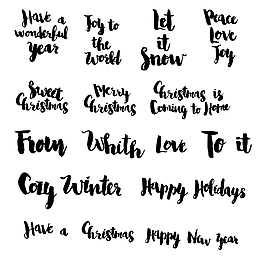 Have a
wonderful
year
Joy to
the
World
Let
it
Snow
Peace
Love
Joy
Sweet
Christmas
Merry
Christmas
Christmas is
Coming to Home
From
Whith
Love
To it
Cozy Winter
Happy Holidays
Have a
Christmas
Happy New Year